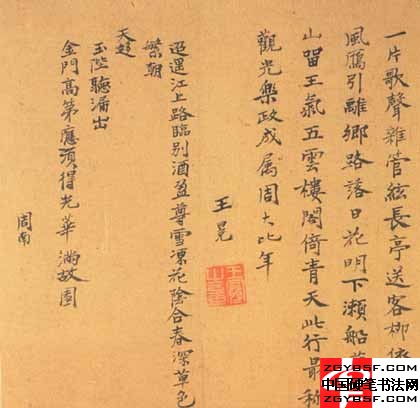 一片歌聲雜管絃長亭送客柳依
風鴈引離鄉路落日花明下瀨船
山留王氣五雲樓閣倚青天此行最稱
觀光樂政成属周大比年
王冕
迢遞江上路臨別酒盈尊雪凍花陰合春深草色
繁朝
天趍
玉陛聽漏出
金門高第應須得光華滿故園
周南
ZGYBSF.COM
中国硬笔书法网
ZGYBSF.COM